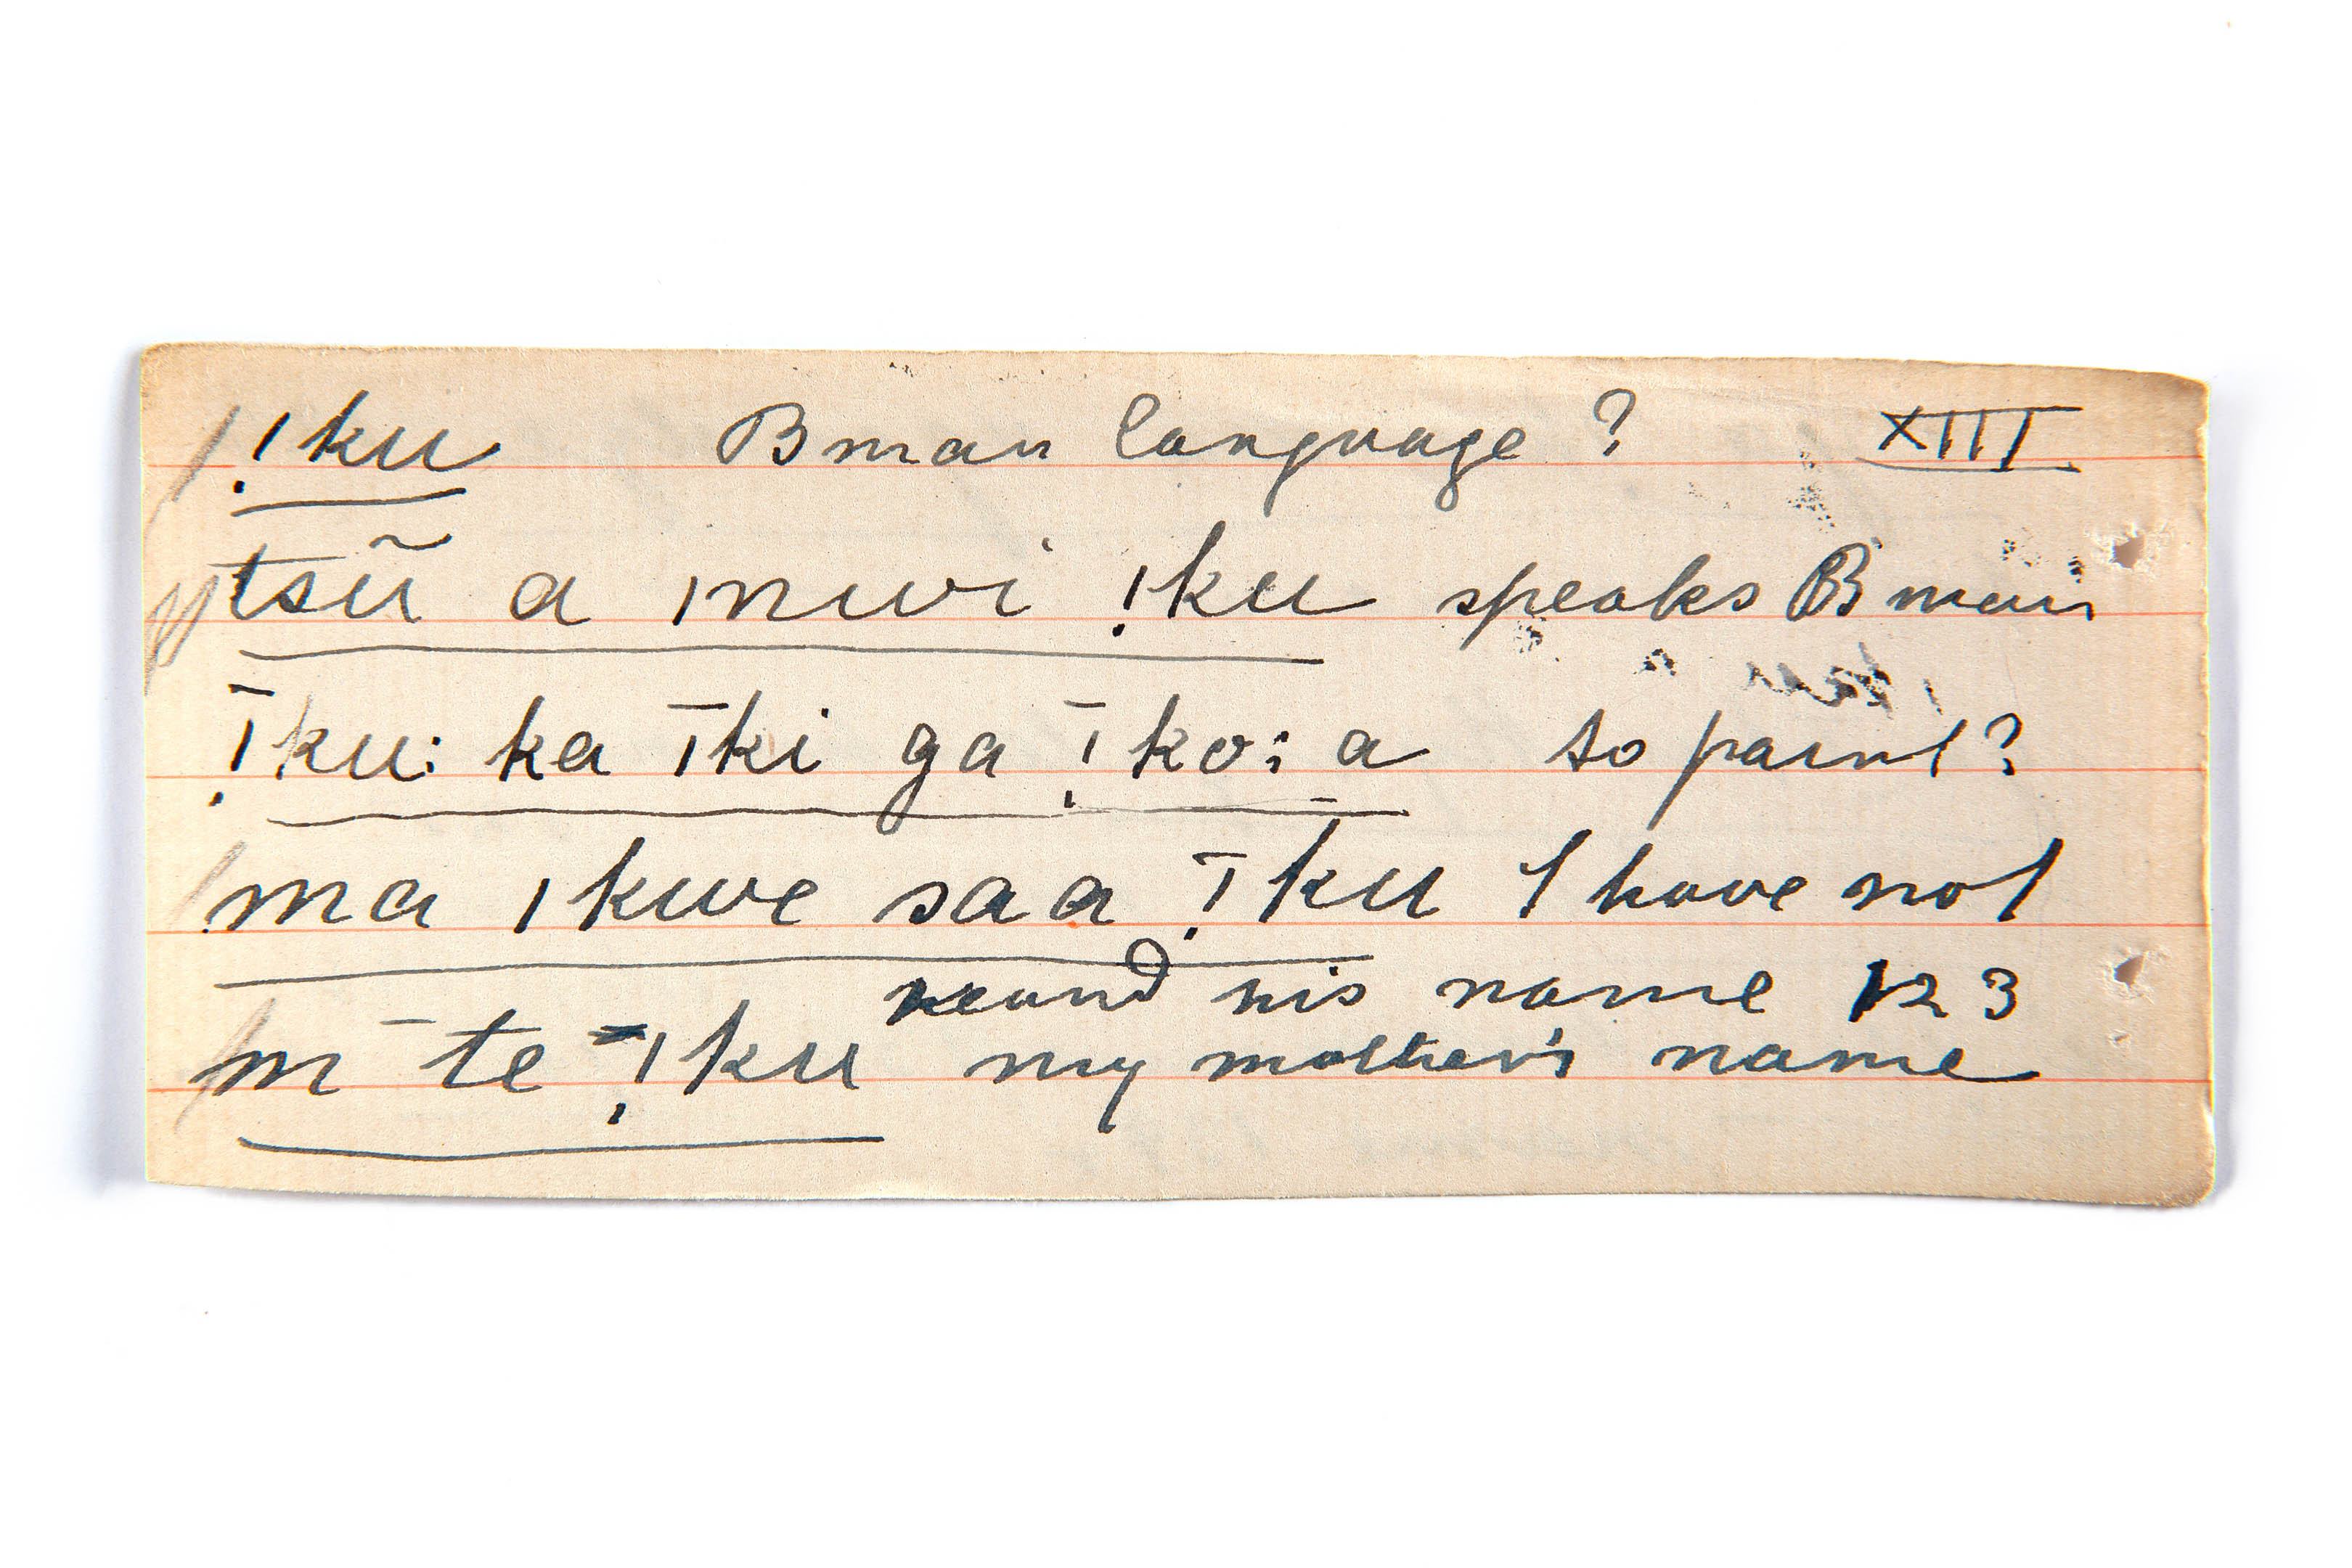 !ku Bman language ? XIII
tsũ a ǀnwi !ku speaks Bman
ǃ̄ku: ka ǀ̄ki ga ǃ̄ko: a to paint?
ma ǀkwe saa ǃ̄ku I have not
heard his name 123
m̄ te !ku my mother's name